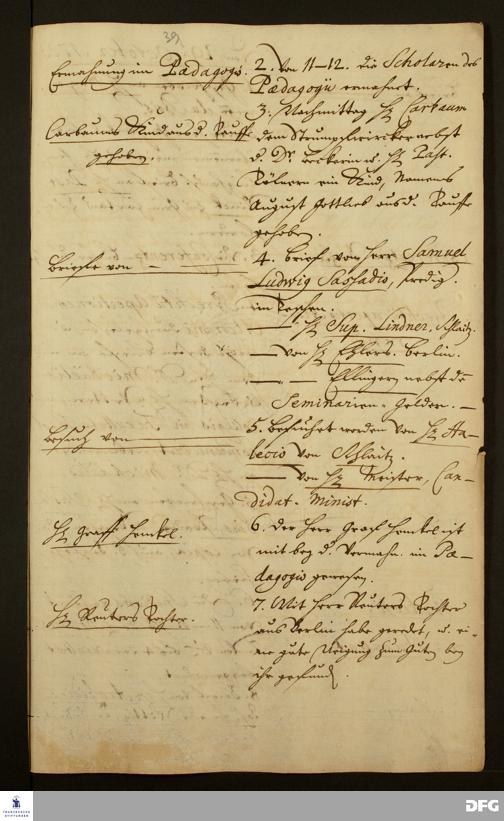 39.
Ermahnung im Pædagogio.
2. Von 11–12. die Scholaren des
Pædagogii ermahnet.
Carbaums Kind aus d. Tauffe
gehoben.
3. Nachmittag H. Carbaum
dem Strumpfwircker nebst
d. Dr. und H. Past.
ein Kind, Namens
August Gottlieb aus d. Tauffe
gehoben.
Brieffe von
4. Brief von Herr Samuel
Ludwig Sassadio, Predig.
in Teschen.
— H. Sup. Lindner, Schlaitz.
— von H. Ehlers. Berlin.
— — Ellinger nebst de
Seminarien-Gelder. —
Besuch von
5. besuchet worden von H. Ha-
lecio von Schlaitz.
— von H. Meister, Can-
didat. Minist.
H. Graff Henckel.
6. Der Herr Graf Henckel ist
mit bey d. Vermahn. im Pæ-
dagogio gewesen.
H. Reuters Tochter.
7. Mit Herr Reuters Tochter
aus Berlin habe geredet, u. ei-
ne gute Neigung zum Guten bey
ihr gefunden.
FRANCKESCHE
STIFTUNGEN
DFG